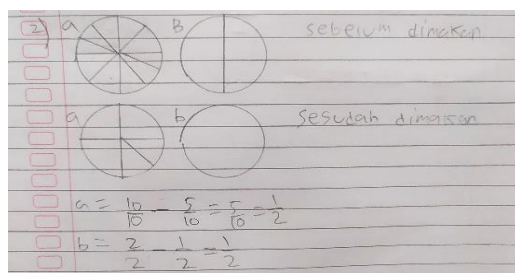 2) a B sebelum dimakan
a b sesudah dimakan
a = 10/10 - 5/10 = 5/10 = 1/2
b = 2/2 - 1/2 = 1/2